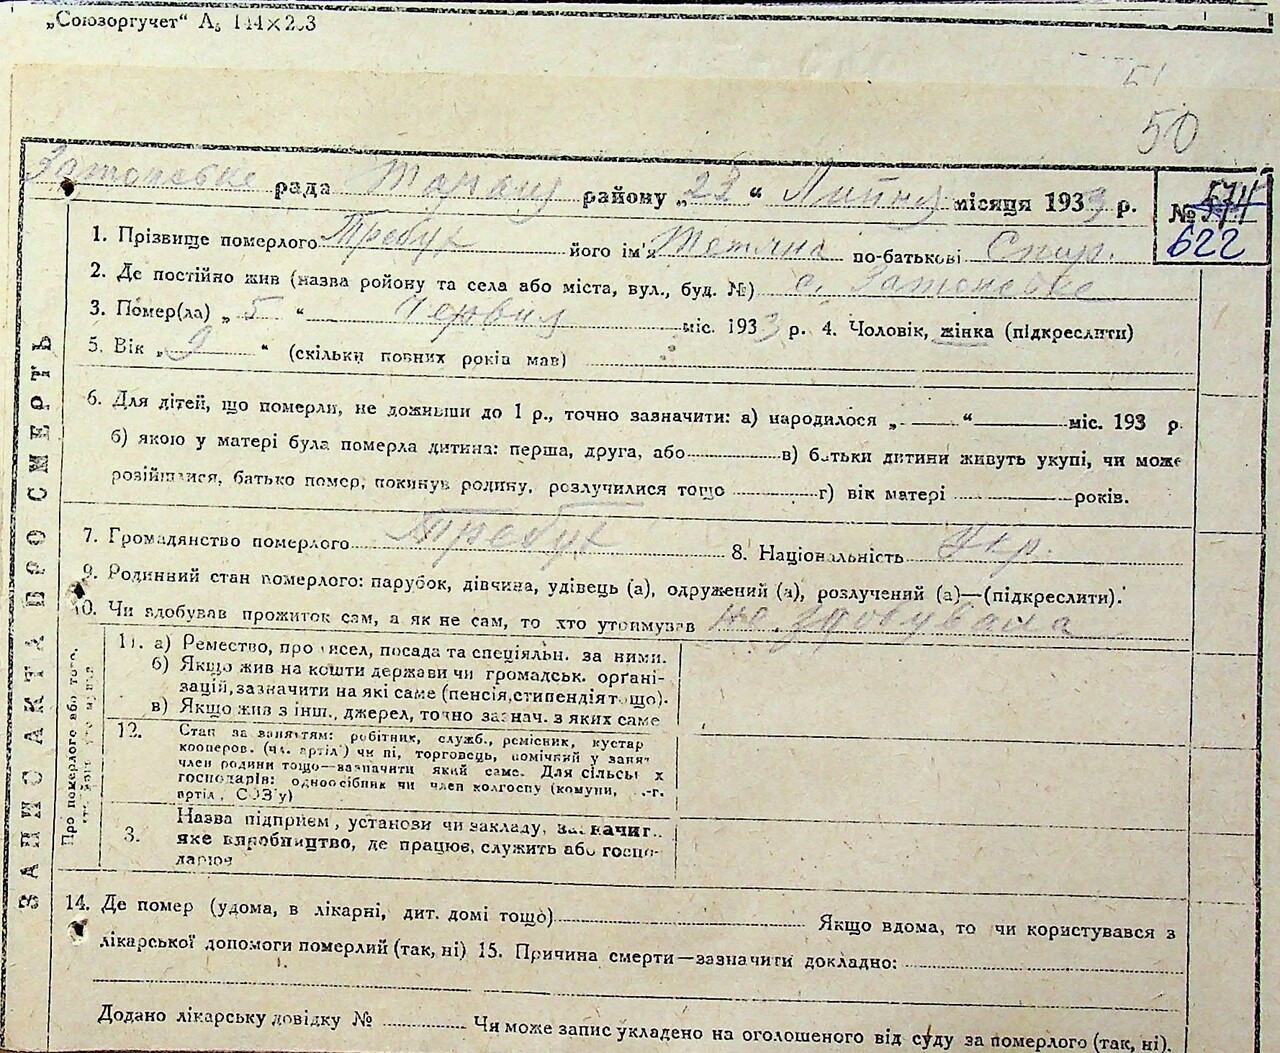 „Союзоргучет“ 144×203
51
50
Затонське рада района „28“ Липня місяця 1933 р.
№ 574
622
1. Прізвище померлого Требук його ім'я Тетяна по-батькові Спир.
2. Де постійно жив (назва ройону та села або міста, вул., буд. №) с. Затонське
3. Помер(ла) „5“ Червня міс. 1933 р. 4. Чоловік, жінка (підкреслити)
5. Вік „9“ (скільки повних років мав)
6. Для дітей, що померли, не доживши до 1 р., точно зазначити: а) народилося „ “ міс. 193 р.
б) якою у матері була померла дитина: перша, друга, або в) батьки дитини живуть укупі, чи може
розійшлися, батько помер, покинув родину, розлучилися тощо г) вік матері років.
7. Громадянство померлого Требук 8. Національність Укр.
9. Родинний стан померлого: парубок, дівчина, удівець (а), одружений (а), розлучений (а)—(підкреслити).
10. Чи здобував прожиток сам, а як не сам, то хто утримував не здобувала
ЗАПИС АКТА ПРО СМЕРТЬ
Про померлого або того,
11. а) Ремество, промисел, посада та спеціяльн. за ними.
б) Якщо жив на кошти держави чи громадськ. орґані-
зацій, зазначити на які саме (пенсія, стипендія тощо).
в) Якщо жив з інш., джерел, точно зазнач. з яких саме
12. Стан за заняттям: робітник, служб., ремісник, кустар
кооперов. (чл. артіл) чи ні, торговець, помічний у занят
член родини тощо—зазначити який саме. Для сільськ х
господарів: одноосібник чи член колгоспу (комуни, с.-г.
артіл, СОЗ'у)
3. Назва підприєм, установи чи закладу, зазначит..
яке виробництво, де працює, служить або госпо-
дарює
14. Де помер (удома, в лікарні, дит. домі тощо) Якщо вдома, то чи користувався з
лікарської допомоги померлий (так, ні) 15. Причина смерти—зазначити докладно:
Додано лікарську довідку № Чи може запис укладено на оголошеного від суду за померлого (так, ні).